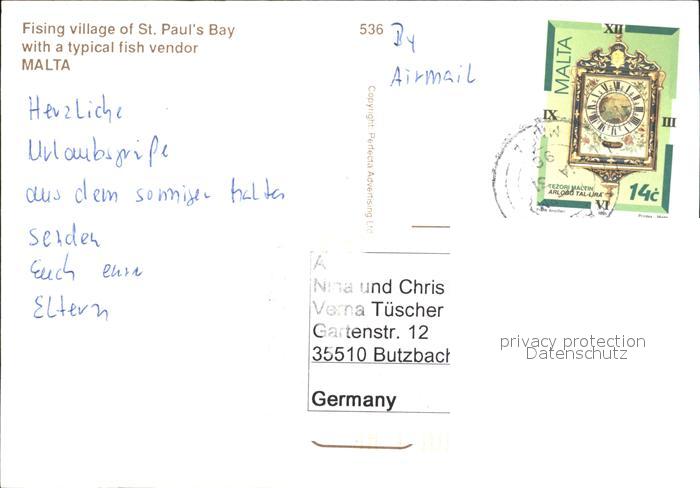 Fising village of St. Paul's Bay
with a typical fish vendor
MALTA
536
By
Airmail
Herzliche
Urlaubsgrüße
aus dem sonnigen Malta
senden
Euch eure
Eltern
Copyright: Perfecta Advertising Ltd
XII
MALTA
IX
III
TEZORI MALTIN
ARLOĠĠ TAL-LIRA
14ċ
VI
A
Nina und Chris
Verna Tüscher
Gartenstr. 12
35510 Butzbach
Germany
privacy protection
Datenschutz